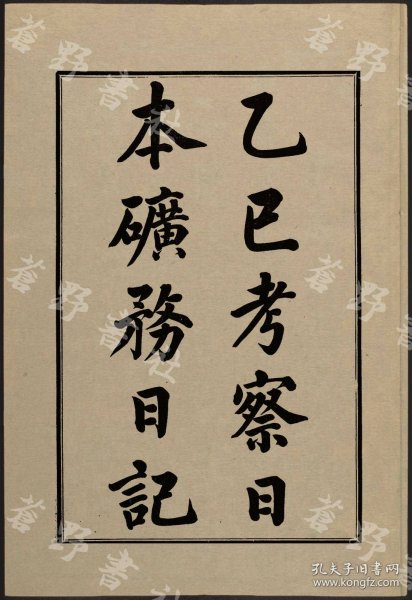 乙巳考察日
本礦務日記
蒼野書社
孔夫子旧书网
www.kongfz.com